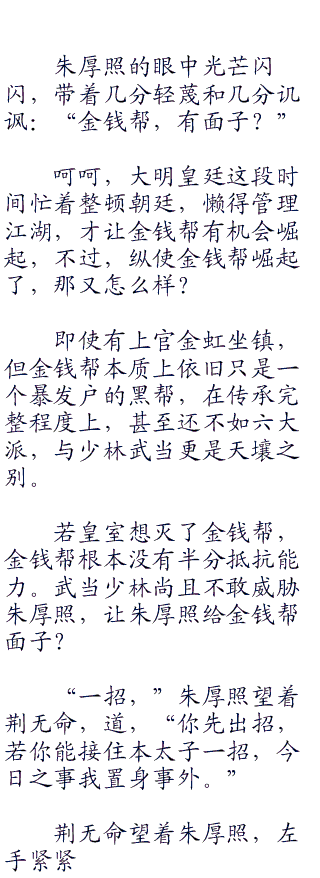 朱厚照的眼中光芒闪
闪，带着几分轻蔑和几分讥
讽：“金钱帮，有面子？”
呵呵，大明皇廷这段时
间忙着整顿朝廷，懒得管理
江湖，才让金钱帮有机会崛
起，不过，纵使金钱帮崛起
了，那又怎么样？
即使有上官金虹坐镇，
但金钱帮本质上依旧只是一
个暴发户的黑帮，在传承完
整程度上，甚至还不如六大
派，与少林武当更是天壤之
别。
若皇室想灭了金钱帮，
金钱帮根本没有半分抵抗能
力。武当少林尚且不敢威胁
朱厚照，让朱厚照给金钱帮
面子？
“一招，”朱厚照望着
荆无命，道，“你先出招，
若你能接住本太子一招，今
日之事我置身事外。”
荆无命望着朱厚照，左
手紧紧